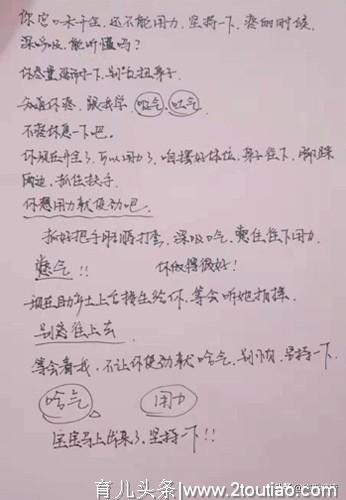 你宫口未开全，还不能用力，坚持一下，疼的时候，
深呼吸，能听懂吗？
你尽量配合一下，别乱扭身子
知道你疼，跟我学，哈气、吐气
不疼休息一下吧。
你现在开全了，可以用力了，咱摆好体位，臀子往下，脚踩
两边，抓住扶手。
你想用力就使劲吧。
抓好把手眼睛打开，深吸口气，憋住往下用力
憋气！！ 你做得很好！
现在助产士上台接生给你，等会听她指挥
别惹往上去
等会看我，不让你使劲就哈气，别怕，坚持一下.
哈气 用力
宝宝马上出来了，坚持一下！！
育儿头条|www.2toutiao.com